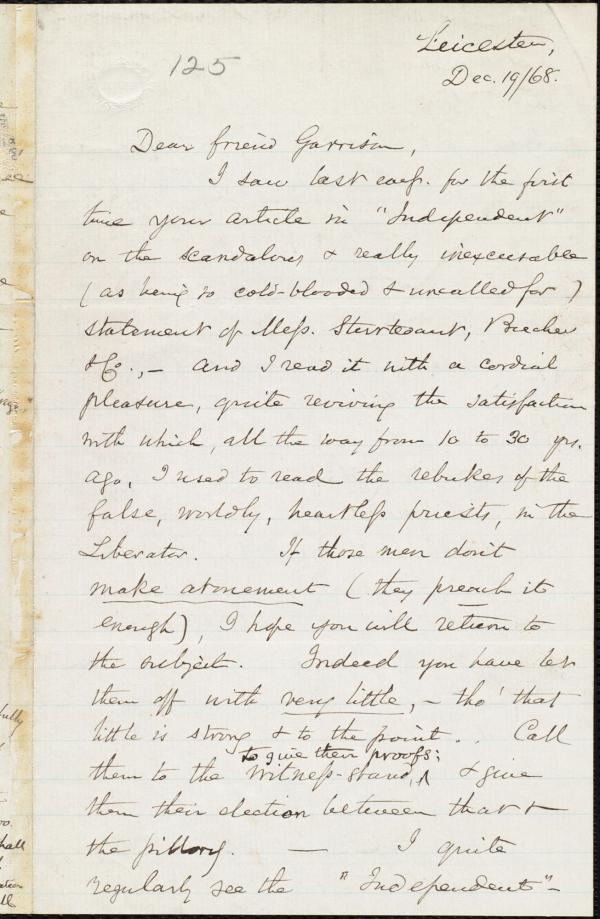 125
Leicester,
Dec. 19/68.
Dear friend Garrison,
I saw last eveg. for the first
time your article in "Independent"
on the scandalous & really inexcusable
(as being so cold-blooded & uncalled for)
statement of Mess. Sturtevant, Beecher
& Co., — and I read it with a cordial
pleasure, quite reviving the satisfaction
with which, all the way from 10 to 30 yrs.
ago, I used to read the rebukes of the
false, worldly, heartless priests, in the
Liberator. If those men don't
make atonement (they preach it
enough), I hope you will return to
the subject. Indeed you have let
them off with very little, — tho' that
little is strong & to the point. . Call
to give their proofs;
them to the witness-stand, ^ & give
them their election between that &
the pillory. — I quite
regularly see the "Independent" —